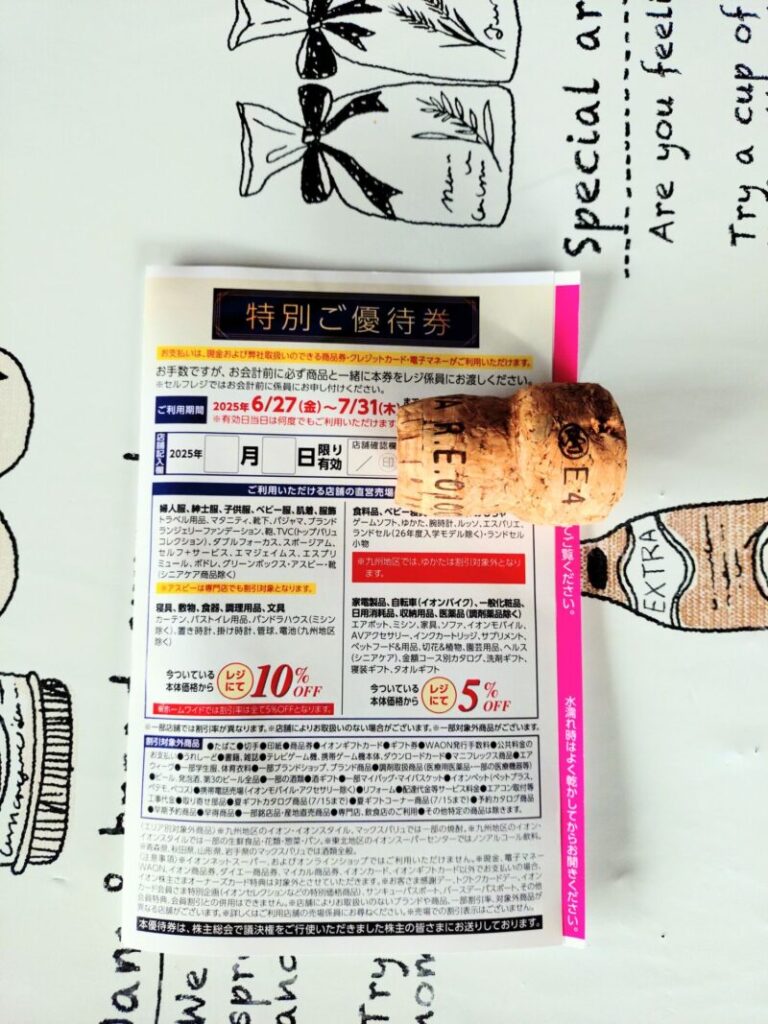 Special ar
Are you feeli
Try a cup of
特別ご優待券
お支払いは、現金および弊社取扱いのできる商品券・クレジットカード・電子マネーがご利用いただけます。
お手数ですが、お会計前に必ず商品と一緒に本券をレジ係員にお渡しください。
※セルフレジではお会計前に係員にお申し付けください。
ご利用期間 2025年 6/27(金)〜7/31(木)
※有効日当日は何度でもご利用いただけます
店舗記入欄 2025年 月 日 限り有効 店舗確認欄 印
ご利用いただける店舗の直営売場
A.R.E.
E4
婦人服、紳士服、子供服、ベビー服、肌着、服飾
トラベル用品、マタニティ、靴下、パジャマ、ブランド
ランジェリーファンデーション、鞄、TVC(トップバリュ
コレクション)、ダブルフォーカス、スポージアム、
セルフ+サービス、エマジェイムス、エスプリ
ミュール、ボドレ、グリーンボックス・アスビー・靴
(シニアケア商品除く)
※アスビーは専門店でも割引対象となります。
寝具、敷物、食器、調理用品、文具
カーテン、バストイレ用品、パンドラハウス(ミシン
除く)、置き時計、掛け時計、管球、電池(九州地区
除く)
今ついている本体価格から レジにて 10%OFF
※ホームワイドでは割引率は全て5%OFFとなります。
食料品、ベビー
ゲームソフト、ゆかた、腕時計、ルッソ、エスパリエ、
ランドセル(26年度入学モデル除く)・ランドセル
小物
※九州地区では、ゆかたは割引対象外となり
ます。
家電製品、自転車(イオンバイク)、一般化粧品、
日用消耗品、収納用品、医薬品(調剤薬品除く)
エアポット、ミシン、家具、ソファ、イオンモバイル、
AVアクセサリー、インクカートリッジ、サプリメント、
ペットフード&用品、切花&植物、園芸用品、ヘルス
(シニアケア)、金額コース別カタログ、洗剤ギフト、
寝装ギフト、タオルギフト
今ついている本体価格から レジにて 5%OFF
※一部店舗では割引率が異なります。※店舗によりお取扱いのない場合がございます。※一部対象外商品がございます。
割引対象外商品 ●たばこ●切手●印紙●商品券●イオンギフトカード●ギフト券●WAON発行手数料●公共料金の
お支払い●うれしーと●書籍、雑誌●テレビゲーム機、携帯ゲーム機本体、ダウンロードカード●マニフレックス商品●エア
ウィーブ●一部学生服、体育衣料●一部ブランドショップ、ブランド商品●調剤取扱商品(医療用医薬品・一部の医療機器等)
●ビール、発泡酒、第3のビール全品●一部の酒類●酒ギフト●一部マイバッグ・マイバスケット●イオンペット(ペットプラス、
ペテモ、ペコス)●携帯電話売場(イオンモバイル・アクセサリー除く)●リフォーム●配達代金等サービス料金●エアコン取付等
工事代金●取り寄せ部品●夏ギフトカタログ商品(7/15まで)●夏ギフトコーナー商品(7/15まで)●予約カタログ商品
●早期予約商品●早得商品●一部銘店品・産地直売商品●専門店、飲食店のご利用●その他特定の商品は除きます。
(エリア別対象外商品)※九州地区のイオン・イオンスタイル、マックスバリュでは一部の焼酎。※九州地区のイオン・
イオンスタイルでは一部の生鮮食品・花類・惣菜・パン。※東北地区のイオンスーパーセンターではノンアルコール飲料。
※青森県、秋田県、山形県、岩手県のマックスバリュでは酒類全般。
(注意事項)※イオンネットスーパー、およびオンラインショップではご利用いただけません。※現金、電子マネー
WAON、イオン商品券、ダイエー商品券、マイカル商品券、イオンカード、イオンギフトカード以外でお支払いの場合、
イオン株主さまオーナーズカード特典は対象外とさせていただきます。※お客さま感謝デー、トクトクカードデー、イオン
カード会員さま特別企画(イオンセレクションなどの特別価格商品)、サンキューパスポート、バースデーパスポート、その他
会員特典、会員割引との併用はできません。※店舗によりお取扱いのないブランドや商品、一部割引率、対象外商品が
異なる店舗がございます。※詳しくはご利用店舗の売場係員にお尋ねください。※売場の割引表示はございません。
本優待券は、株主総会で議決権をご行使いただきました株主の皆さまにお送りしております。
ご覧ください。
水濡れ時はよく乾かしてからお開きください。
EXTRA
We
Try